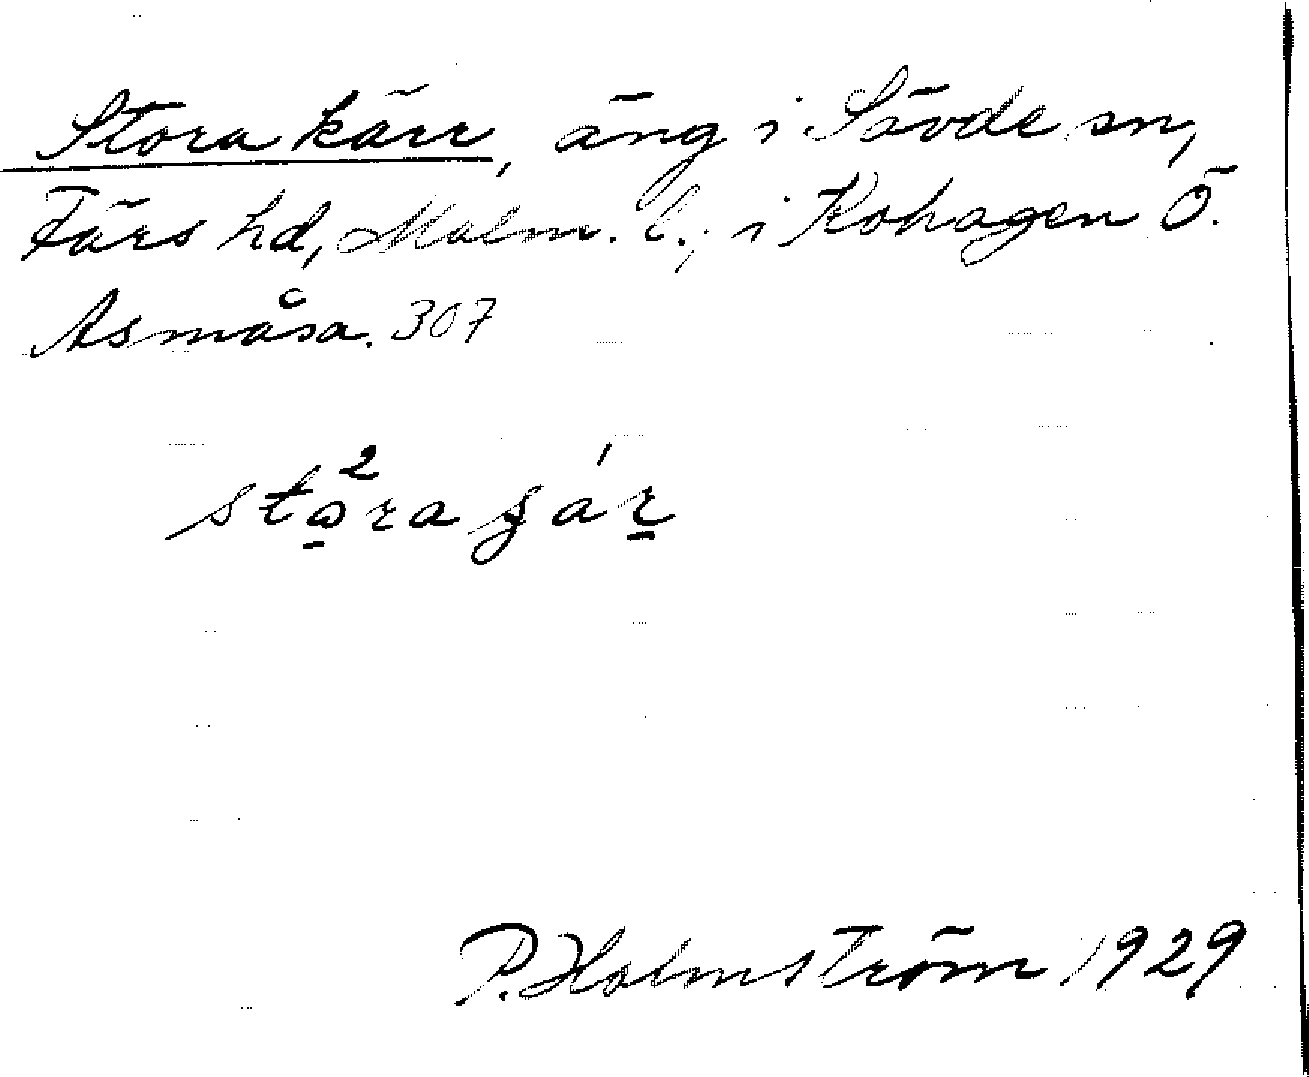 Stora kärr, äng i Sövde sn,
Färs hd, Malm. l.; i Kohagen Ö.
Asmåsa. 307
2
stora ɟár
P. Holmström 1929